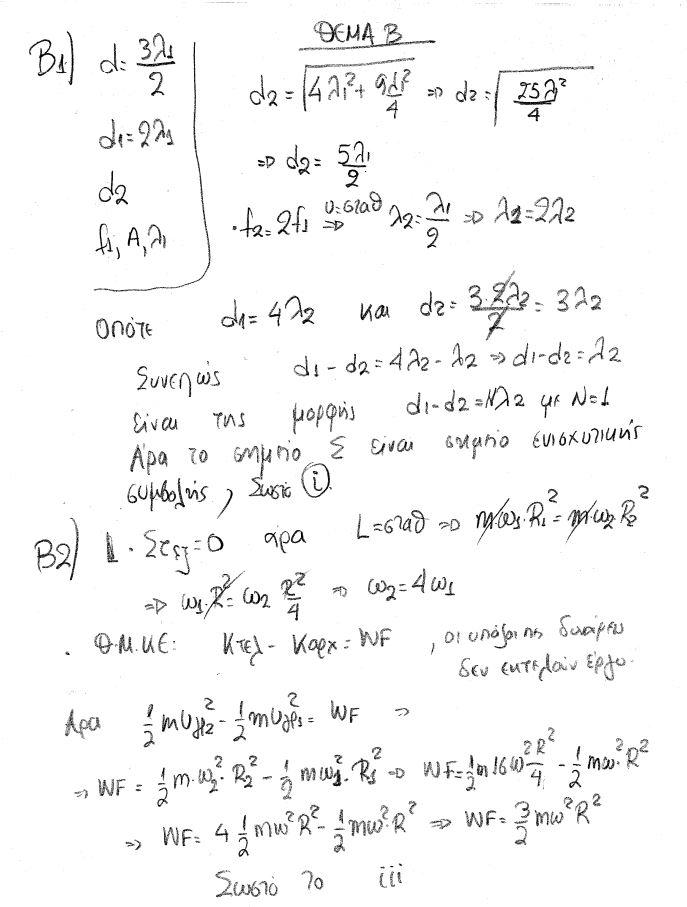 ΘΕΜΑ Β
Β1) d = 3λ1/2
d1 = 2λ1
d2
f1, A, λ1
d2 = √(4λ1² + 9λ1²/4) => d2 = √(25λ²/4)
=> d2 = 5λ1/2
· f2 = 2f1 =(υ=σταθ)=> λ2 = λ1/2 => λ1 = 2λ2
οπότε d1 = 4λ2 και d2 = 3·2λ2/2 = 3λ2
Συνεπώς d1 - d2 = 4λ2 - λ2 => d1 - d2 = λ2
είναι της μορφής d1 - d2 = Νλ2 με Ν=1
Άρα το σημείο Σ είναι σημείο ενισχυτικής
συμβολής, Σωστό (i).
Β2) · Στεξ = 0 άρα L = σταθ => mω1·R1² = mω2 R2²
=> ω1·R² = ω2 R²/4 => ω2 = 4ω1
· Θ.Μ.Κ.Ε: Κτελ - Καρχ = WF , οι υπόλοιπες δυνάμεις
δεν εκτελούν έργο.
Άρα 1/2 mυγρ2² - 1/2 mυγρ1² = WF =>
=> WF = 1/2 m·ω2²·R2² - 1/2 mω1²·R1² => WF = 1/2 m16ω² R²/4 - 1/2 mω²·R²
=> WF = 4 1/2 mω²R² - 1/2 mω²·R² => WF = 3/2 mω²R²
Σωστό το iii